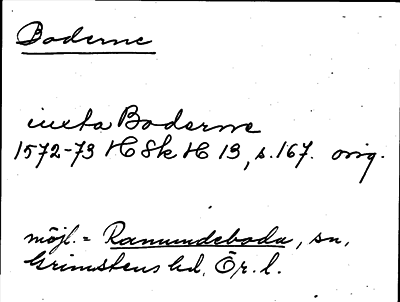 Boderne
iuxta Boderne
1572-73 HSkH 13, s. 167. orig.
möjl. = Ramundeboda, sn,
Grimstens hd, Ör. l.